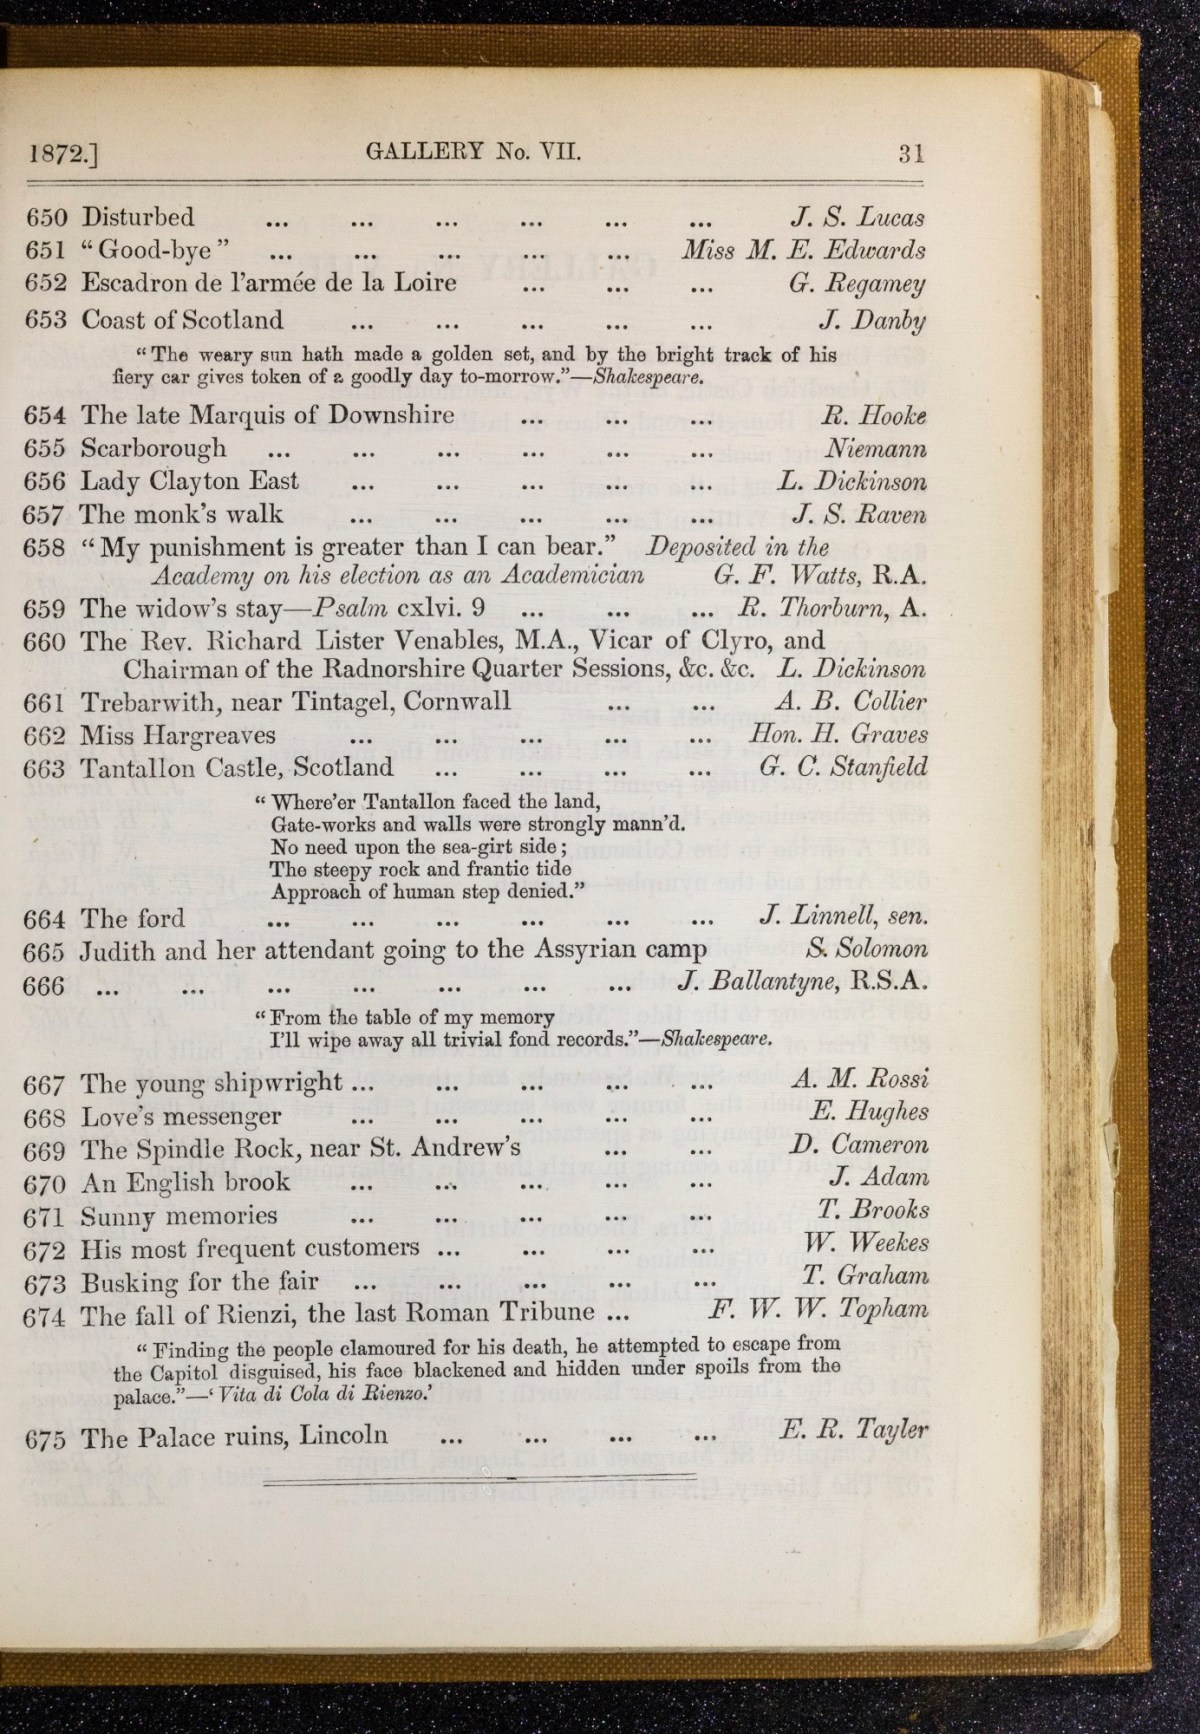 1872.] GALLERY No. VII. 31
650 Disturbed ... ... ... ... ... ... J. S. Lucas
651 “Good-bye” ... ... ... ... ... Miss M. E. Edwards
652 Escadron de l’armée de la Loire ... ... ... G. Regamey
653 Coast of Scotland ... ... ... ... ... J. Danby
“The weary sun hath made a golden set, and by the bright track of his
fiery car gives token of a goodly day to-morrow.”—Shakespeare.
654 The late Marquis of Downshire ... ... ... R. Hooke
655 Scarborough ... ... ... ... ... ... Niemann
656 Lady Clayton East ... ... ... ... ... L. Dickinson
657 The monk’s walk ... ... ... ... ... J. S. Raven
658 “My punishment is greater than I can bear.” Deposited in the
Academy on his election as an Academician G. F. Watts, R.A.
659 The widow’s stay—Psalm cxlvi. 9 ... ... ... R. Thorburn, A.
660 The Rev. Richard Lister Venables, M.A., Vicar of Clyro, and
Chairman of the Radnorshire Quarter Sessions, &c. &c. L. Dickinson
661 Trebarwith, near Tintagel, Cornwall ... ... A. B. Collier
662 Miss Hargreaves ... ... ... ... ... Hon. H. Graves
663 Tantallon Castle, Scotland ... ... ... ... G. C. Stanfield
“Where’er Tantallon faced the land,
Gate-works and walls were strongly mann’d.
No need upon the sea-girt side;
The steepy rock and frantic tide
Approach of human step denied.”
664 The ford ... ... ... ... ... ... J. Linnell, sen.
665 Judith and her attendant going to the Assyrian camp S. Solomon
666 ... ... ... ... ... ... ... J. Ballantyne, R.S.A.
“From the table of my memory
I’ll wipe away all trivial fond records.”—Shakespeare.
667 The young shipwright ... ... ... ... ... A. M. Rossi
668 Love’s messenger ... ... ... ... ... E. Hughes
669 The Spindle Rock, near St. Andrew’s ... ... D. Cameron
670 An English brook ... ... ... ... ... J. Adam
671 Sunny memories ... ... ... ... ... T. Brooks
672 His most frequent customers ... ... ... ... W. Weekes
673 Busking for the fair ... ... ... ... ... T. Graham
674 The fall of Rienzi, the last Roman Tribune ... F. W. W. Topham
“Finding the people clamoured for his death, he attempted to escape from
the Capitol disguised, his face blackened and hidden under spoils from the
palace.”—‘Vita di Cola di Rienzo.’
675 The Palace ruins, Lincoln ... ... ... ... E. R. Tayler